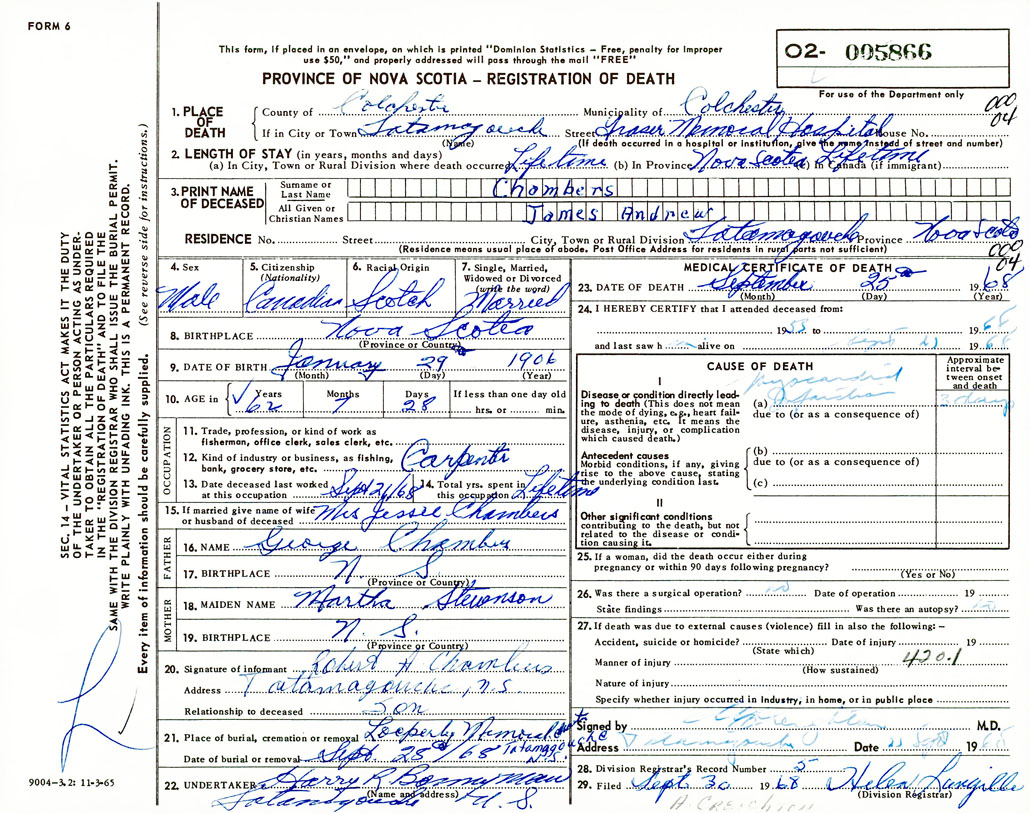 FORM 6
This form, if placed in an envelope, on which is printed "Dominion Statistics – Free, penalty for improper
use $50," and properly addressed will pass through the mail "FREE"
O2- 005866
PROVINCE OF NOVA SCOTIA – REGISTRATION OF DEATH
For use of the Department only
000
04
1. PLACE OF DEATH
County of Colchester Municipality of Colchester
If in City or Town Tatamagouche Street Fraser Memorial Hospital House No.
(Name) (If death occurred in a hospital or institution, give the name instead of street and number)
2. LENGTH OF STAY (in years, months and days)
(a) In City, Town or Rural Division where death occurred Lifetime (b) In Province Nova Scotia Lifetime (c) In Canada (if immigrant)
3. PRINT NAME OF DECEASED
Surname or Last Name Chambers
All Given or Christian Names James Andrew
RESIDENCE No. Street City, Town or Rural Division Tatamagouche Province Nova Scotia
(Residence means usual place of abode. Post Office Address for residents in rural parts not sufficient)
000
04
4. Sex Male
5. Citizenship (Nationality) Canadian
6. Racial Origin Scotch
7. Single, Married, Widowed or Divorced (write the word) Married
8. BIRTHPLACE Nova Scotia
(Province or Country)
9. DATE OF BIRTH January 29 1906
(Month) (Day) (Year)
10. AGE in Years Months Days If less than one day old
62 7 28 hrs. or min.
OCCUPATION
11. Trade, profession, or kind of work as fisherman, office clerk, sales clerk, etc.
12. Kind of industry or business, as fishing, bank, grocery store, etc. Carpenter
13. Date deceased last worked at this occupation Sept 21/68
14. Total yrs. spent in this occupation Lifetime
15. If married give name of wife or husband of deceased Mrs Jessie Chambers
FATHER
16. NAME George Chambers
17. BIRTHPLACE N. S.
(Province or Country)
MOTHER
18. MAIDEN NAME Martha Stevenson
19. BIRTHPLACE N. S.
(Province or Country)
20. Signature of informant Robert A Chambers
Address Tatamagouche, N.S.
Relationship to deceased Son
21. Place of burial, cremation or removal Memorial
Tatamagouche N.S.
Date of burial or removal Sept 28/68
22. UNDERTAKER Harry R Bonnyman
(Name and address)
Tatamagouche N. S.
MEDICAL CERTIFICATE OF DEATH
23. DATE OF DEATH September 25 1968
(Month) (Day) (Year)
24. I HEREBY CERTIFY that I attended deceased from:
1955 to 1968
and last saw h alive on Sept 1968
CAUSE OF DEATH
Approximate interval between onset and death
I
Disease or condition directly leading to death (This does not mean
the mode of dying, e.g., heart failure, asthenia, etc. It means the
disease, injury, or complication which caused death.)
(a) Myocardial Infarction 3 days
due to (or as a consequence of)
Antecedent causes
Morbid conditions, if any, giving rise to the above cause, stating
the underlying condition last.
(b)
due to (or as a consequence of)
(c)
II
Other significant conditions
contributing to the death, but not related to the disease or condition causing it.
25. If a woman, did the death occur either during
pregnancy or within 90 days following pregnancy?
(Yes or No)
26. Was there a surgical operation? no Date of operation 19
State findings Was there an autopsy? no
27. If death was due to external causes (violence) fill in also the following: –
Accident, suicide or homicide? Date of injury 19
(State which)
Manner of injury 420.1
(How sustained)
Nature of injury
Specify whether injury occurred in Industry, in home, or in public place
Signed by M.D.
Address Tatamagouche Date Sept 1968
28. Division Registrar's Record Number 5
29. Filed Sept 30 1968 Helen Langille
(Division Registrar)
H. CREIGHTON
SEC. 14 – VITAL STATISTICS ACT MAKES IT THE DUTY
OF THE UNDERTAKER OR PERSON ACTING AS UNDER-
TAKER TO OBTAIN ALL THE PARTICULARS REQUIRED
IN THE "REGISTRATION OF DEATH" AND TO FILE THE
SAME WITH THE DIVISION REGISTRAR WHO SHALL ISSUE THE BURIAL PERMIT.
WRITE PLAINLY WITH UNFADING INK. THIS IS A PERMANENT RECORD.
Every item of information should be carefully supplied. (See reverse side for instructions.)
9004-3.2: 11-3-65